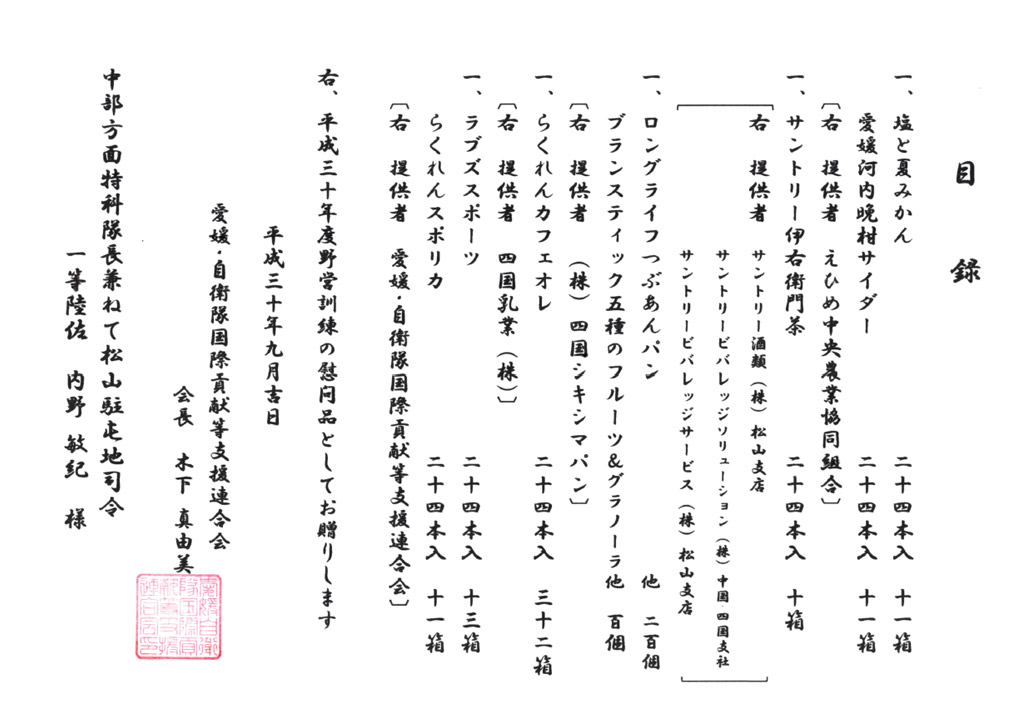 目録
一、塩と夏みかん 二十四本入 十一箱
愛媛河内晩柑サイダー 二十四本入 十一箱
〔右 提供者 えひめ中央農業協同組合〕
一、サントリー伊右衛門茶 二十四本入 十箱
右 提供者 サントリー酒類(株)松山支店
サントリービバレッジソリューション(株)中国・四国支社
サントリービバレッジサービス(株)松山支店
一、ロングライフつぶあんパン 他 二百個
ブランスティック五種のフルーツ&グラノーラ 他 百個
〔右 提供者 (株)四国シキシマパン〕
一、らくれんカフェオレ 二十四本入 三十二箱
〔右 提供者 四国乳業(株)〕
一、ラブズスポーツ 二十四本入 十三箱
らくれんスポリカ 二十四本入 十一箱
〔右 提供者 愛媛・自衛隊国際貢献等支援連合会〕
右、平成三十年度野営訓練の慰問品としてお贈りします
平成三十年九月吉日
愛媛・自衛隊国際貢献等支援連合会
会長 木下 真由美
中部方面特科隊長兼ねて松山駐屯地司令
一等陸佐 内野 敏紀 様